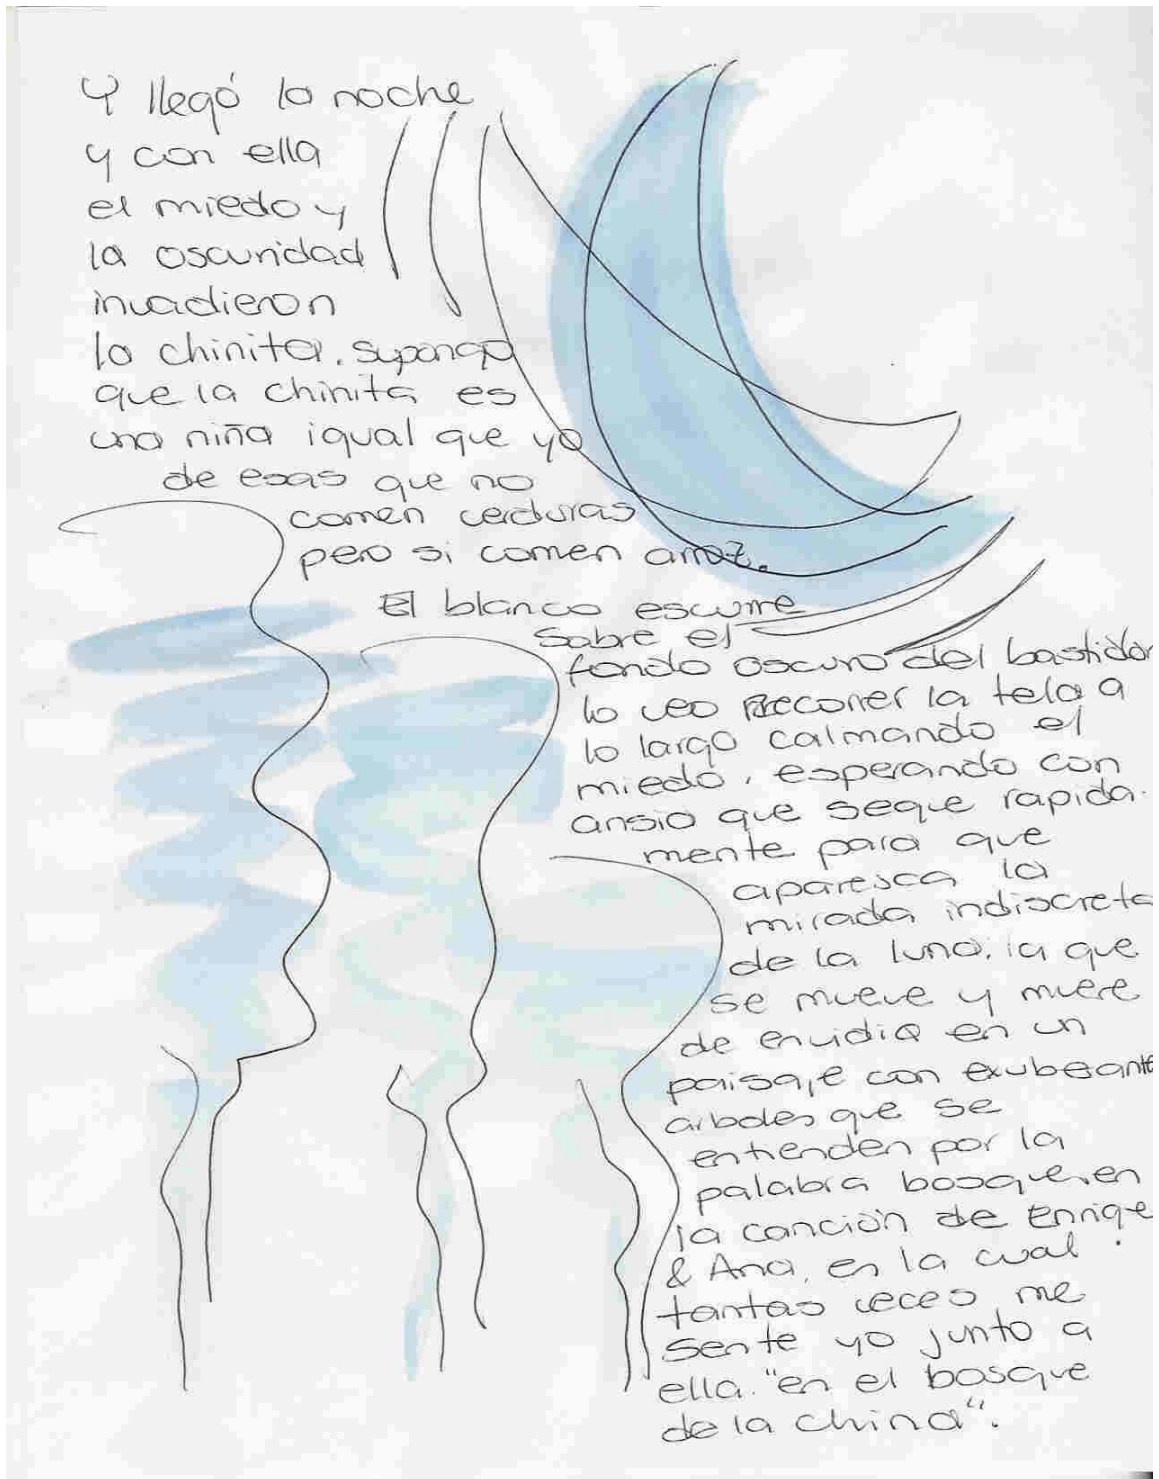 Y llegó la noche
y con ella
el miedo y
la oscuridad
invadieron
la chinita. supongo
que la chinita es
una niña igual que yo
de esas que no
comen verduras
pero si comen arroz.
El blanco escurre
sobre el
fondo oscuro del bastidor
lo veo recorrer la tela a
lo largo calmando el
miedo, esperando con
ansia que seque rapida-
mente para que
aparesca la
mirada indiscreta
de la luna, la que
se mueve y muere
de envidia en un
paisaje con exuberante
arboles que se
entienden por la
palabra bosque, en
la canción de Enrique
& Ana, en la cual
tantas veces me
sente yo junto a
ella. "en el bosque
de la china".